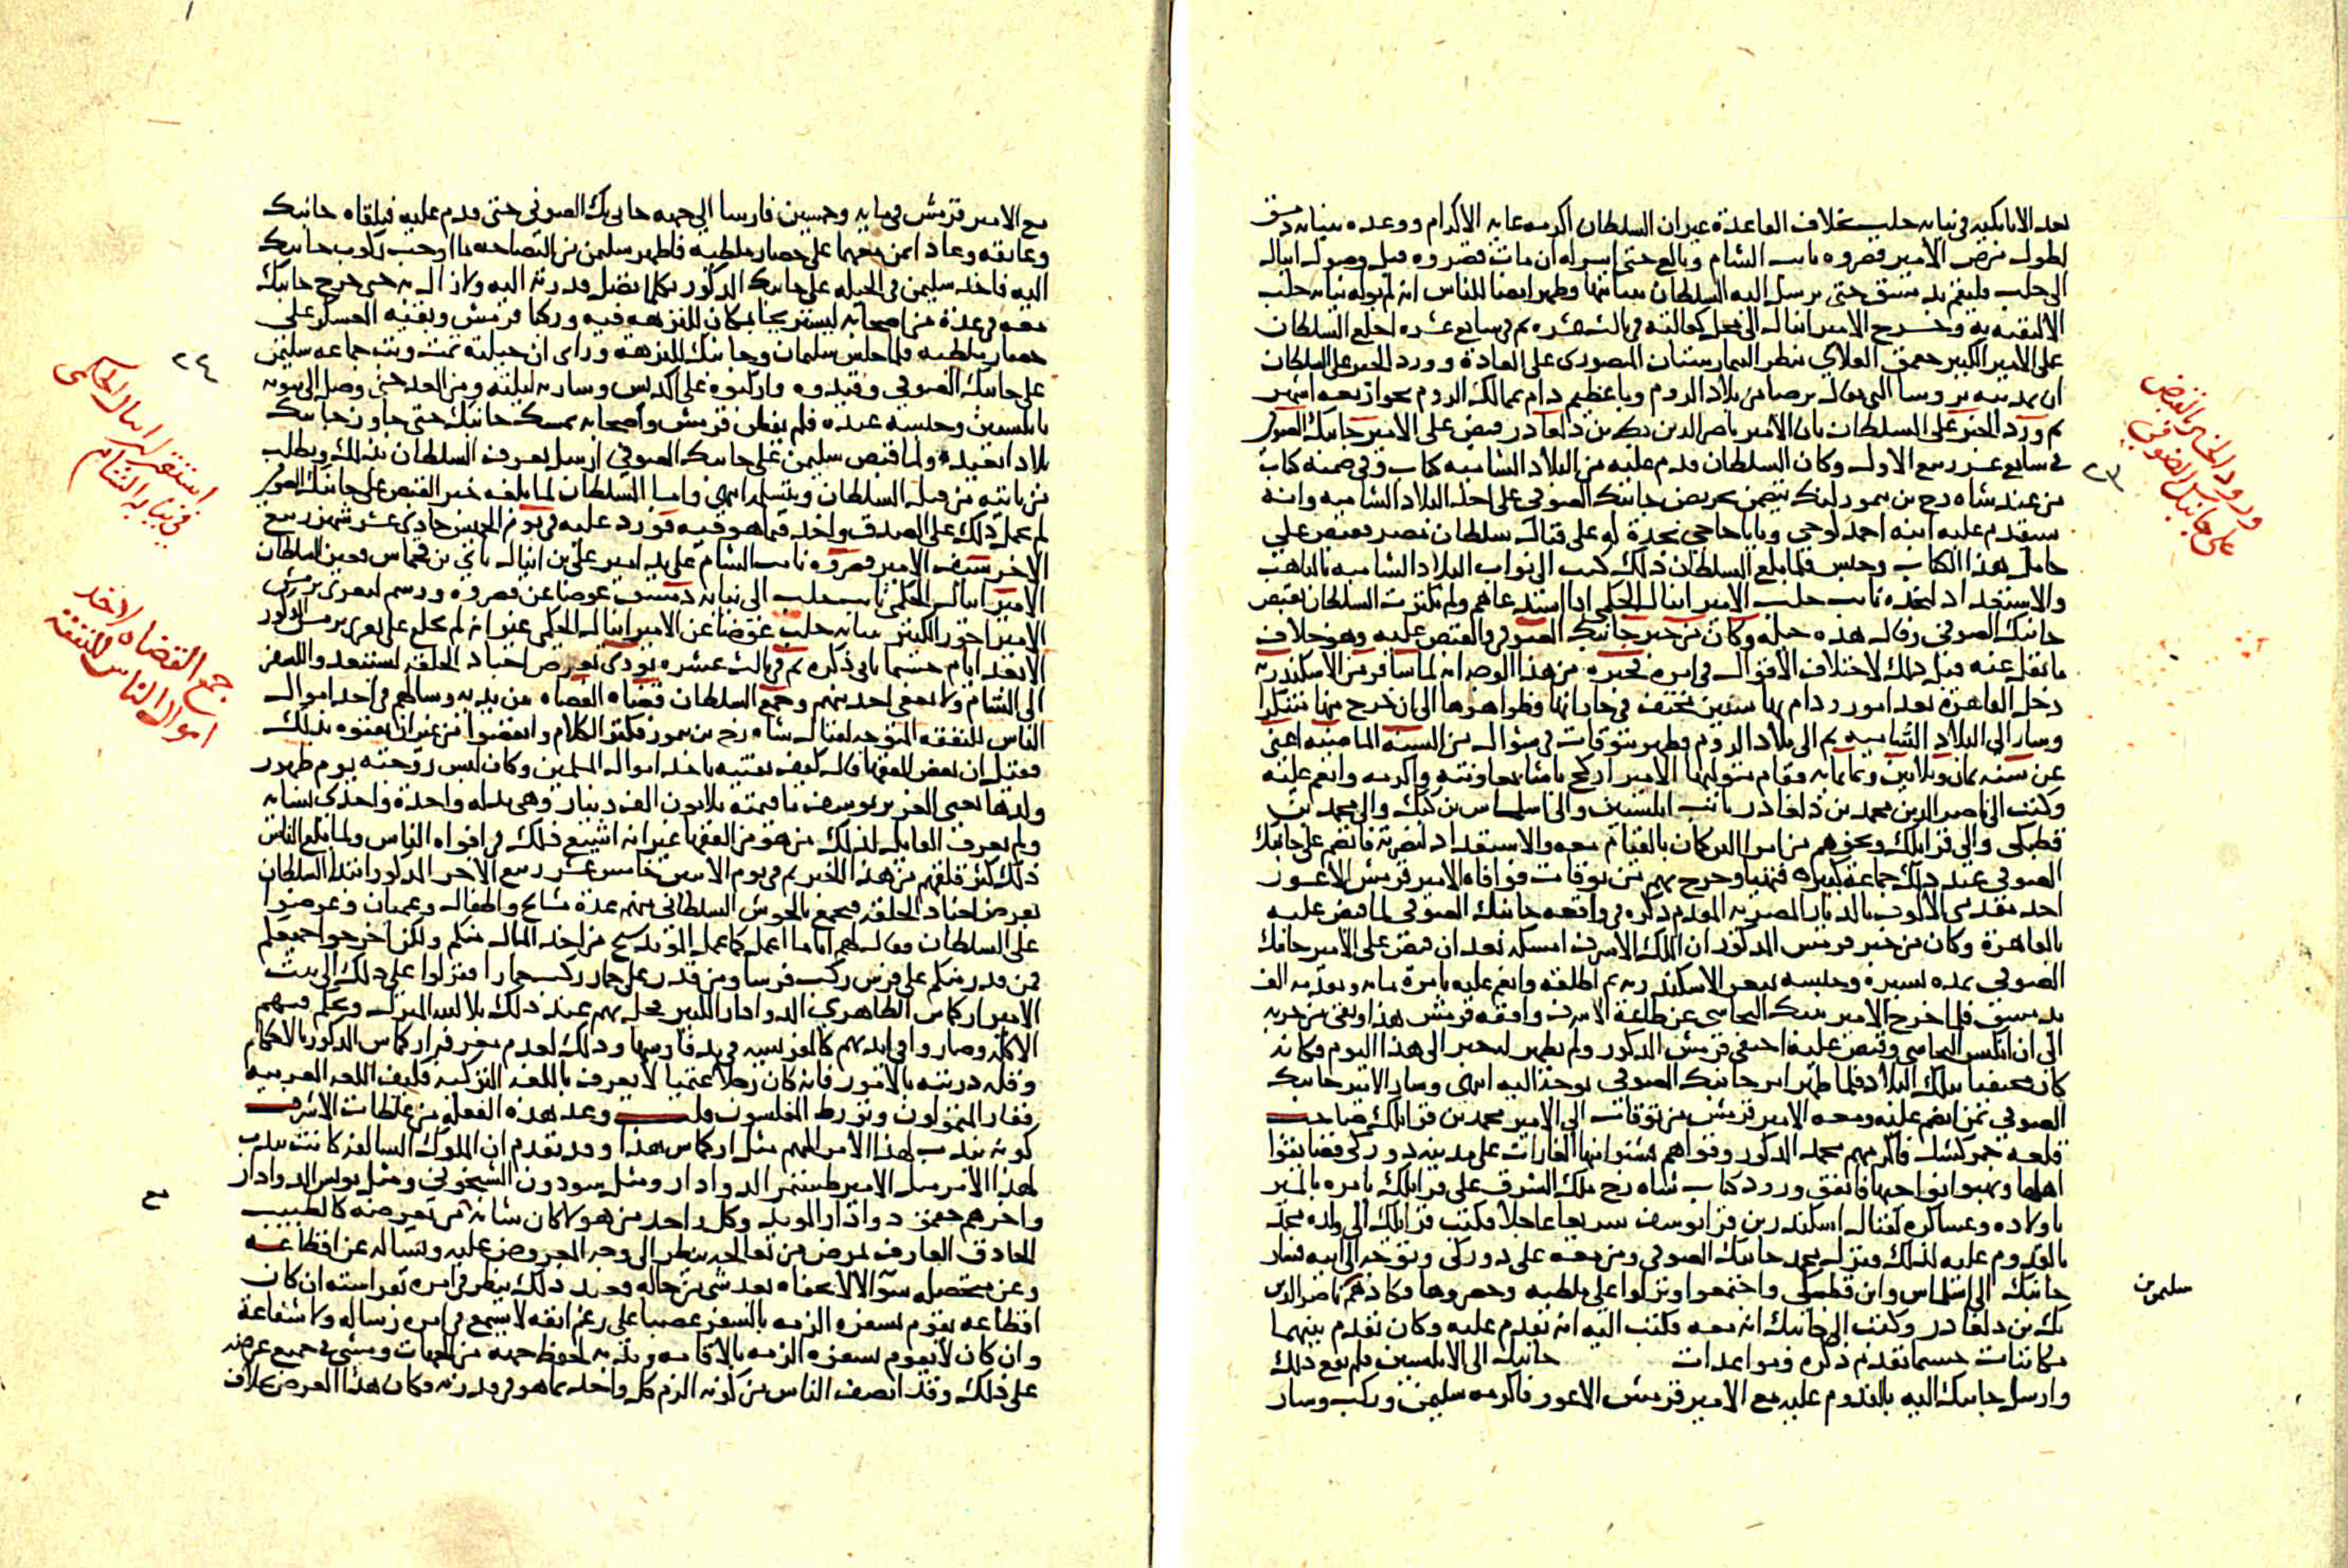 بعد الاتابكيه في نيابه حلب بخلاف القاعدة غير ان السلطان اكرمه غايه الاكرام ووعده بنيابه دمشق
لطول مرض الامير قصروه نايب الشام وبالغ حتى اسر له ان مات قصروه قبل وصول اينال
الى حلب فليقم بدمشق حتى يرسل اليه السلطان بنيابتها وظهر ايضا للناس انه لم يوله نيابه حلب
الا لتقيه به وخرج الامير اينال الى محل كفالته في ثالث عشره ثم في سابع عشره اخلع السلطان
على الامير الكبير جقمق العلاي بنظر البيمارستان المنصوري على العادة وورد الخبر على السلطان
ان بمدينه بروسا التي يقال برصا من بلاد الروم وبا عظيم دام بممالك الروم نحو اربعه اشهر
ثم ورد الخبر على السلطان بان الامير ناصر الدين بك بن دلغادر قبض على الامير جانبك الصوفي
في سابع عشر ربيع الاول وكان السلطان قدم عليه من البلاد الشاميه كتاب وفي ضمنه كتاب
من عند شاه رخ بن تمورلنك يتضمن تحريض جانبك الصوفي على اخذ البلاد الشاميه وانه
سيقدم عليه ابنه احمد لوجي وبابا حاجي نجدة له على قتال سلطان مصر فقبض على
حامل هذا الكتاب وحبس فلما بلغ السلطان ذلك كتب الى نواب البلاد الشاميه بالتاهب
والاستعداد لنجده نايب حلب الامير اينال الجكمي اذا استدعاهم ولم يكترث السلطان بقبض
جانبك الصوفي وقال هذه حيله وكان من خبر جانبك الصوفي والقبض عليه وهو خلاف
ما نقل عنه قبل ذلك لاختلاف الاقوال في امره فخبره من هذا الوجه انه لما سافر من الاسكندريه
دخل القاهرة بعد امور ودام بها سنين مختف في حاراتها وظواهرها الى ان خرج منها متنكرا
وسار الى البلاد الشاميه ثم الى بلاد الروم فظهر بتوقات في شوال من السنه الماضيه اعني
عن سنه ثمان وثلاثين وثمانمايه فقام متوليها الامير اركج باشا بمعاونته واكرمه وانعم عليه
وكتب الى ناصر الدين محمد بن دلغادر نايب ابلستين والى اسلماس بن كبك والى محمد بن
قطبكي والى قرايلك ونحوهم من امرا التركمان بالقيام معه والاستعداد لنصرته فانضم على جانبك
الصوفي عند ذلك جماعة كبيره فتهيا وخرج بهم من توقات فوافاه الامير قرمش الاعور
احد مقدمي الالوف بالديار المصريه المقدم ذكره في واقعه جانبك الصوفي لما قبض عليه
بالقاهرة وكان من خبر قرمش المذكور ان الملك الاشرف امسكه بعد ان قبض على الامير جانبك
الصوفي بمده يسيرة وحبسه بسجن الاسكندريه ثم اطلقه وانعم عليه بامرة مايه وتقدمه الف
بدمشق فلما خرج الامير تنبك البجاسي عن طاعة الاشرف وافقه قرمش هذا وبقي من حزبه
الى ان انكسر البجاسي وقبض عليه اختفى قرمش المذكور ولم يظهر له خبر الى هذا اليوم فكانه
كان مختفيا بتلك البلاد فلما ظهر امر جانبك الصوفي توجه اليه انتهى وسار الامير جانبك
الصوفي بمن انضم عليه ومعه الامير قرمش من توقات الى الامير محمد بن قرايلك صاحب
قلعه جمركشك فاكرمهم محمد المذكور وقواهم فشنوا منها الغارات على مدينه دوركي فضايقوا
اهلها ونهبوا نواحيها فاتفق ورود كتاب شاه رخ ملك الشرق على قرايلك يامره بالمسير
باولاده وعساكره لقتال اسكندر بن قرا يوسف سريعا عاجلا فكتب قرايلك الى ولده محمد
بالقدوم عليه لذلك فترك محمد جانبك الصوفي ومن معه على دوركي وتوجه الى ابيه فسار
جانبك الى اسلماس وابن قطبكي واجتمعوا ونزلوا على ملطيه وحصروها فكادهم ناصر الدين
بك بن دلغادر وكتب الى جانبك انه معه فكتب اليه ان يقدم عليه وكان تقدم بينهما
مكاتبات حسبما تقدم ذكره ومواعدات جانبك الى الابلستين فلم يقع ذلك
وارسل جانبك اليه بالقدوم عليه مع الامير قرمش الاعور فاكرمه سليمن وركب وسار
ورود الخبر بالقبض
على جانبك الصوفي
٢٣
سليمن بن
مع الامير قرمش في مايه وخمسين فارسا الى جهه جاني بك الصوفي حتى قدم عليه فتلقاه جانبك
وعانقه وعادا بمن معهما على حصار ملطيه فاظهر سليمن من النصاحه ما اوجب ركون جانبك
اليه فاخذ سليمن في الحيله على جانبك المذكور بكل ما تصل قدرته اليه ولا زال به حتى خرج جانبك
معه في عدة من اصحابه ليسيرا بمكان للنزهه فيه وركبا قرمش وبقيه العسكر على
حصار ملطيه فلما جلس سليمان وجانبك للنزهة وراى ان حيلته تمت وثب جماعه سليمن
على جانبك الصوفي وقيدوه واركبوه على اكديش وسار به ليلته ومن الغد حتى وصل الى بيوته
بابلستين وحبسه عنده فلم يفطن قرمش واصحابه بمسك جانبك حتى جاوز جانبك
بلادا بعيده ولما قبض سليمن على جانبك الصوفي ارسل يعرف السلطان بذلك ويطلب
من ياتيه من قبل السلطان ويتسلمه انتهى واما السلطان لما بلغه خبر القبض على جانبك الصوفي
لم يحمل ذلك على الصدق واخذ فيما هو فيه فورد عليه في يوم الخميس حادي عشر شهر ربيع
الاخر سيف الامير قصروه نايب الشام على يد امير علي بن اينال باي بن قجماس فعين السلطان
الامير اينال الجكمي نايب حلب الى نيابه دمشق عوضا عن قصروه ورسم لتغري برمش
الامير اخور الكبير بنيابه حلب عوضا عن الامير اينال الجكمي غير انه لم يخلع على تغري برمش المذكور
الا بعد ايام حسبما ياتي ذكره ثم في ثالث عشره نودي بعرض اجناد الحلقه لستعد وا للسفر
الى الشام ولا يعفى احد منهم وجمع السلطان قضاه القضاه من يديه وسالهم في اخذ اموال
الناس للنفقه المتوجه لقتال شاه رخ بن تمور فكثر الكلام وانفضوا من غير ان يفتوه بذلك
فقيل ان بعض الفقها قال كيف نفتيه باخذ اموال المسلمين وكان لبس زوجته يوم طهور
ولدها يعني العزيز يوسف ما قيمته ثلاثون الف دينار وهي بدله واحدة واحدى نسايه
ولم يعرف القايل لذلك من هو من الفقها غير انه اشيع ذلك في افواه الناس ولما بلغ الناس
ذلك كثر قلقهم من هذا الخبر ثم في يوم الاثنين خامس عشر ربيع الاخر المذكور ابتدا السلطان
بعرض اجناد الحلقه فتجمع بالحوش السلطاني منهم عدة مشايخ واطفال وعميان وعرضوا
على السلطان فقال لهم انا ما اعمل كما عمل المؤيد شيخ من اخذ المال منكم ولكن اخرجوا جميعكم
فمن قدر منكم على فرس ركب فرسا ومن قدر على حمار ركب حمارا فنزلوا على ذلك الى بيت
الامير اركماس الظاهري الدوادار الكبير فحل بهم عند ذلك بلا الله المنزل وتحكم فيهم
الاكله وصاروا في ايديهم كالفريسه في يد فارسها وذلك لعدم معرفه اركماس المذكور بالاحكام
وقله دربته بالامور فانه كان رجلا غتميا لا يعرف باللغه التركيه فكيف اللغه العربيه
ففاز المتمولون وتورط المفلسون قلت وعد هذه الفعله من غلطات الاشرف
كونه يندب لهذا الامر المهم مثل اركماس هذا وقد تقدم ان الملوك السالفه كانت تندب
لهذا الامر مثل الامير طشتمر الدوادار ومثل سودون الشيخوني ومثل يونس الدوادار
واخرهم جقمق دوادار المويد وكل واحد من هولا كان شانه من يعرضه كالطبيب
الحاذق العارف لمرض من يعالجه ينظر الى وجه المعروض عليه ويساله عن اقطاعه
وعن متحصله سوالا لا يخفاه بعد شي من حاله فعند ذلك ينظر في امره بفراسته ان كان
اقطاعه يقوم بسفره الزمه بالسفر غصبا على رغم انفه لا يسمع في امره رساله ولا شفاعة
وان كان لا يقوم بسفره الزمه بالاقامه وندبه لحفظ جهه من الجهات ومشى في جميع عرضه
على ذلك وقد انصف الناس من كونه الزم كل واحد بما هو في قدرته فكان هذا العرض بخلاف
استقرار اينال الجكمي
في نيابه الشام
٢٤
جمع القضاه لاخذ
اموال الناس للنفقه